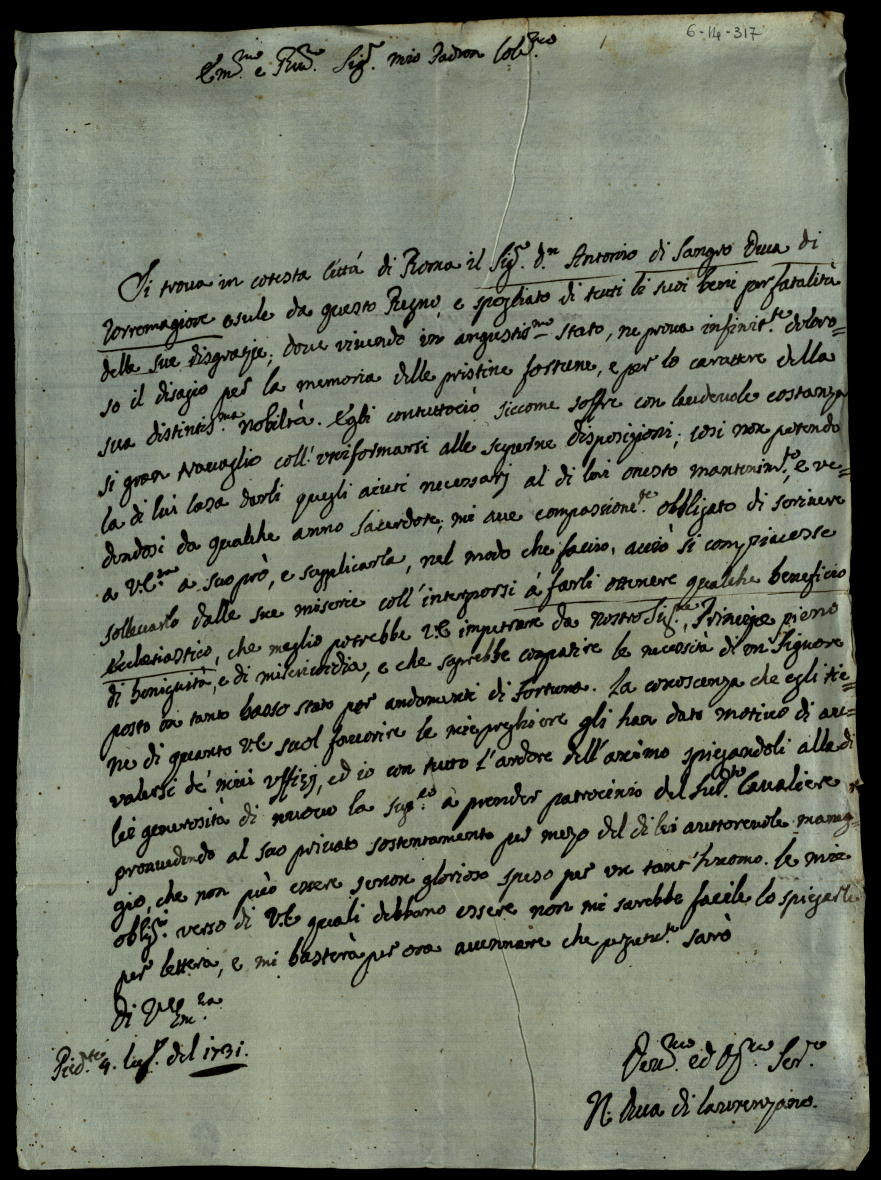 6-14-317
Em.mo e Rmo. Sig.r mio Padron Col.mo
Si trova in cotesta Città di Roma il Sig.r D.n Antonio di Sangro Duca di
Torremagiore esule da questo Regno, e spogliato di tutti li suoi beni per fatalità
delle sue disgrazie; dove vivendo in angustis.mo stato, ne prova infinit.te doloro=
so il disagio per la memoria delle pristine fortune, e per lo carattere della
sua distintis.ma nobiltà. Egli contuttociò siccome soffre con laudevole costanza
si gran travaglio coll'uniformarsi alle superne disposizioni; così non potendo
la di lui Casa darli quegli aiuti necessarj al di lui onesto mantenim.to, e ve=
dendosi da qualche anno Sacerdote; mi ave compassione.te obbligato di scrivere
a V.E.ma a suo prò, e supplicarla, nel modo che faccio, acciò si compiacesse
sollevarlo dalle sue miserie coll'interporsi à farli ottenere qualche beneficio
Ecclesiastico, che meglio potrebbe V.E. impetrare da Nostro Sig.re, Principe pieno
di benignità, e di misericordia, e che saprebbe compatire le necessità di un Signore
posto in tanto basso stato per andamenti di Fortuna. La conoscenza che egli tie=
ne di quanto V.E. suol favorire le mie preghiere gli han dato motivo di av=
valersi de' miei uffizj, ed io con tutto l'ardore dell'animo spiegandoli alla di
lei generosità di nuovo la sup.co à prender patrocinio del sud.to Cavaliere
provvedendo al suo privato sostentamento per mezo del di lei auttorevole maneg=
gio, che non può essere senon glorioso speso per un tant'huomo. Le mie
obblig.ni verso di V.E. quali debbano essere non mi sarebbe facile lo spiegarle
per lettera, e mi basterà per ora accennare che perpetuam.te sarò
Di V.Em.za
Pied.te 4. lug.o del 1731.
Dev.mo ed Obl.mo Ser.re
N. Duca di Laurenzano.